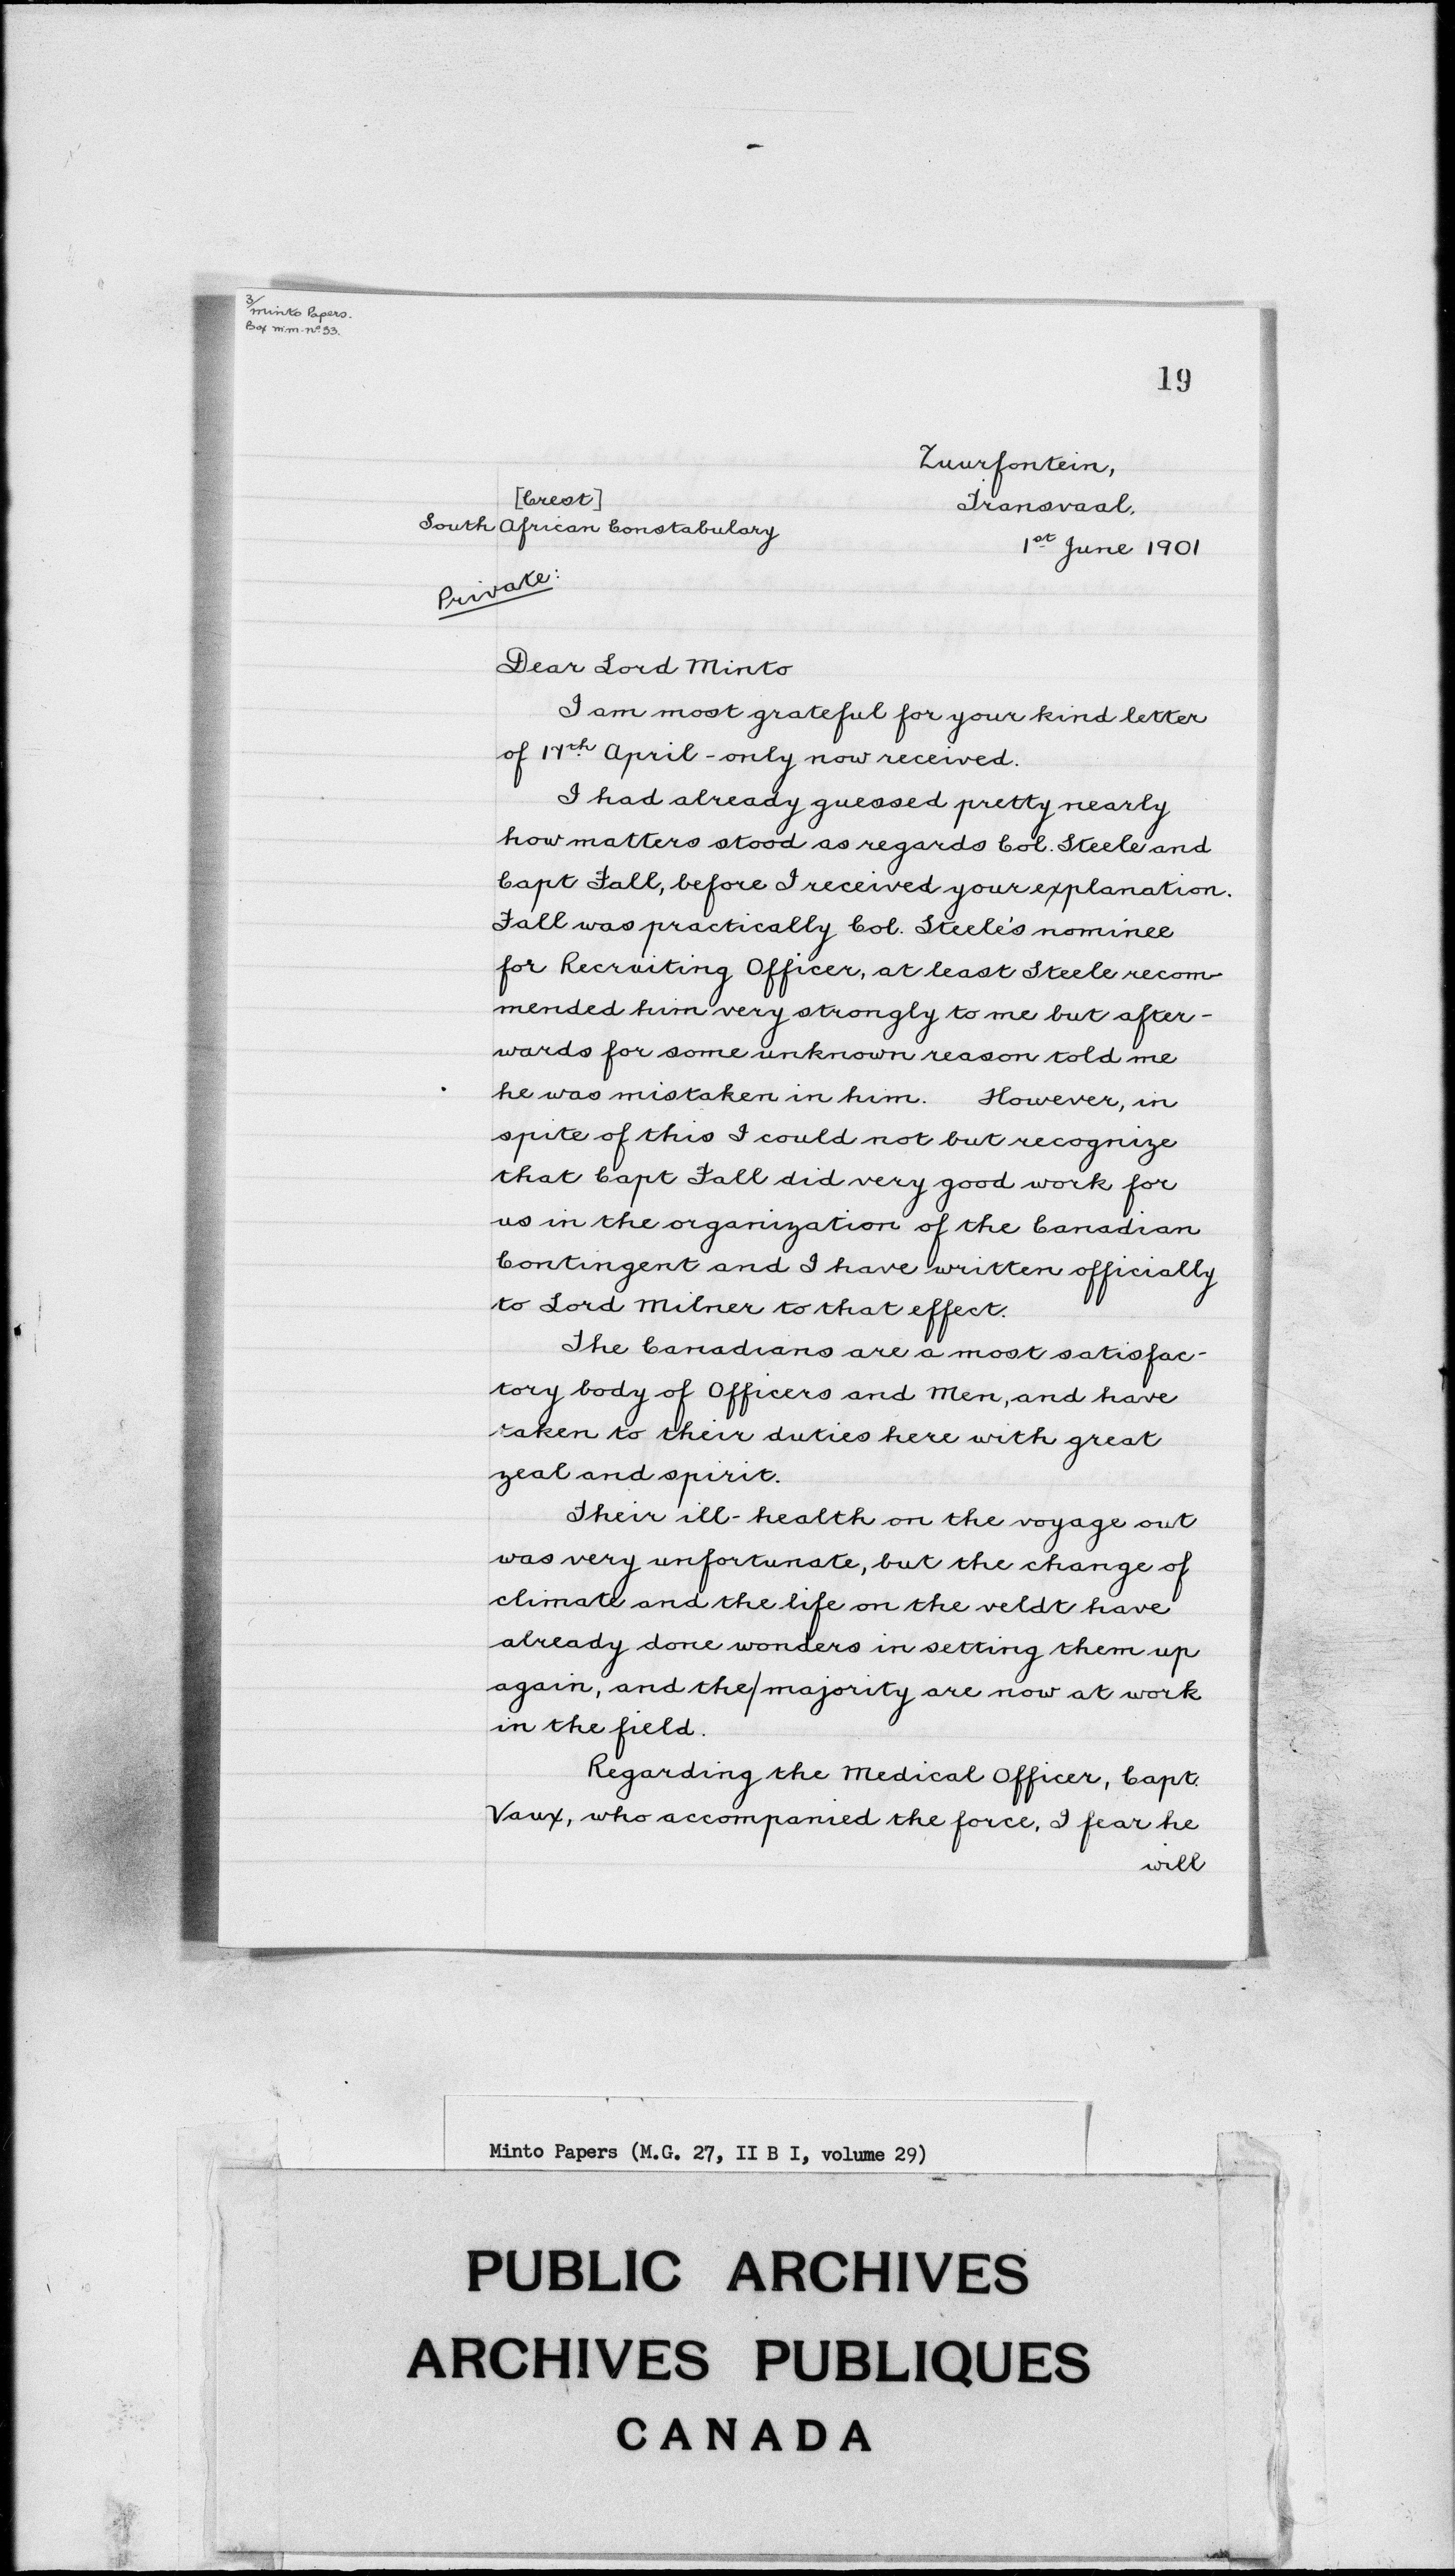 3/
Minto Papers.
Box M.M. No. 33.
19
Zuurfontein,
Transvaal.
1st June 1901
[Crest]
South African Constabulary
Private:
Dear Lord Minto
I am most grateful for your kind letter
of 17th April - only now received.
I had already guessed pretty nearly
how matters stood as regards Col. Steele and
Capt Fall, before I received your explanation.
Fall was practically Col. Steele's nominee
for Recruiting Officer, at least Steele recom-
mended him very strongly to me but after-
wards for some unknown reason told me
he was mistaken in him. However, in
spite of this I could not but recognize
that Capt Fall did very good work for
us in the organization of the Canadian
Contingent and I have written officially
to Lord Milner to that effect.
The Canadians are a most satisfac-
tory body of Officers and Men, and have
taken to their duties here with great
zeal and spirit.
Their ill-health on the voyage out
was very unfortunate, but the change of
climate and the life on the veldt have
already done wonders in setting them up
again, and the/majority are now at work
in the field.
Regarding the Medical Officer, Capt.
Vaux, who accompanied the force, I fear he
will
Minto Papers (M.G. 27, II B I, volume 29)
PUBLIC ARCHIVES
ARCHIVES PUBLIQUES
CANADA